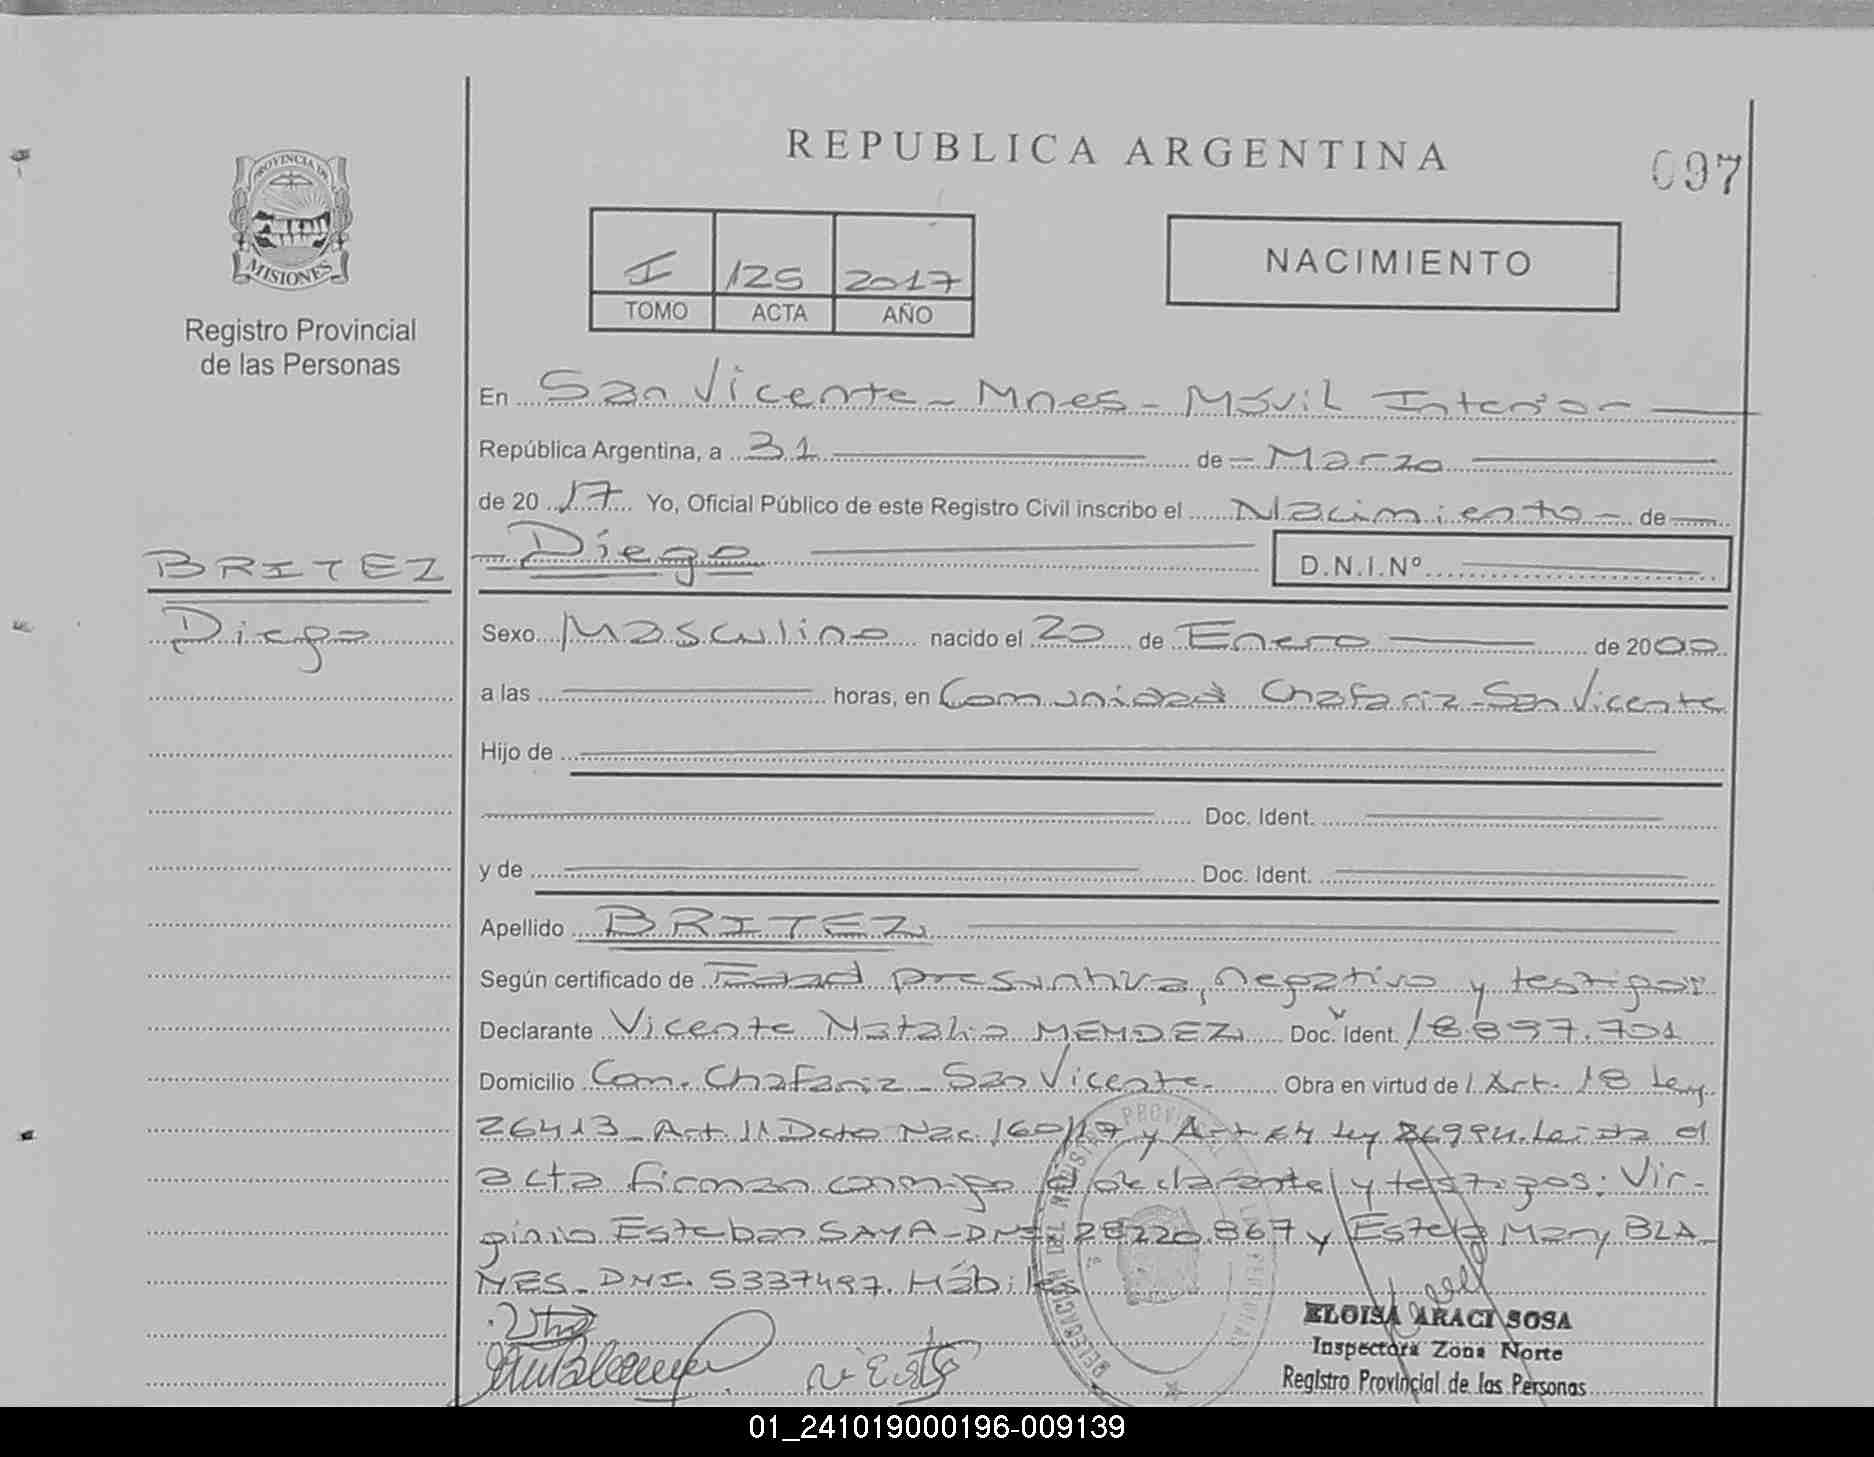 REPUBLICA ARGENTINA
097
PROVINCIA DE
MISIONES
Registro Provincial
de las Personas
I 125 2017
TOMO ACTA AÑO
NACIMIENTO
En San Vicente - Mnes - Móvil Interior
República Argentina, a 31 de Marzo
de 2017 Yo, Oficial Público de este Registro Civil inscribo el Nacimiento de
BRITEZ
Diego
Diego D.N.I.Nº
Sexo Masculino nacido el 20 de Enero de 2000
a las horas, en Comunidad Chafariz - San Vicente
Hijo de
Doc. Ident.
y de Doc. Ident.
Apellido BRITEZ
Según certificado de Edad presuntiva, negativo y testigos
Declarante Vicente Natalio MENDEZ Doc. Ident. 18.897.701
Domicilio Com. Chafariz - San Vicente Obra en virtud de Art. 18 Ley
26413 - Art 11 Dcto Nac. 160/17 y Art 64 Ley 26994. Leida el
acta firman conmigo el declarante y testigos: Vir-
ginio Esteban SAYA - DNI. 28220.867 y Estela Mary BLA-
NES - DNI. 5337497. Hábiles
ELOISA ARACI SOSA
Inspectora Zona Norte
Registro Provincial de las Personas
01_241019000196-009139